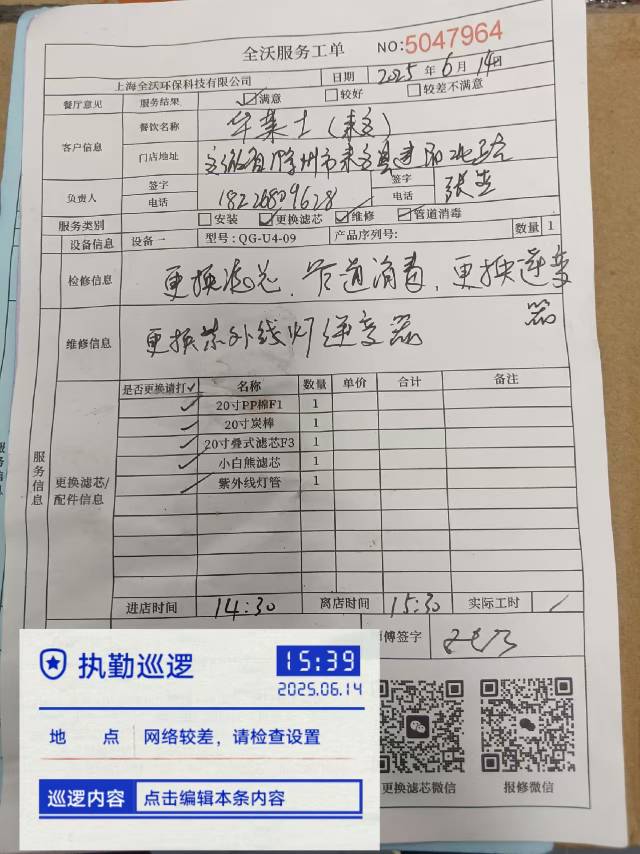 全沃服务工单 NO:5047964
上海全沃环保科技有限公司 日期 2025年6月14日
餐厅意见 服务结果 ☑满意 □较好 □较差不满意
客户信息 餐饮名称 华莱士(来安)
门店地址 安徽省滁州市来安县建阳北路
负责人 签字 签字 张
电话 18226809628 电话
服务类别 □安装 ☑更换滤芯 ☑维修 ☑管道消毒
设备信息 设备一 型号:QG-U4-09 产品序列号: 数量 1
检修信息 更换滤芯、管道消毒,更换逆变器
维修信息 更换紫外线灯逆变器
服务信息
更换滤芯/配件信息
是否更换请打✓ 名称 数量 单价 合计 备注
✓ 20寸PP棉F1 1
✓ 20寸炭棒 1
✓ 20寸叠式滤芯F3 1
✓ 小白熊滤芯 1
✓ 紫外线灯管 1
进店时间 14:30 离店时间 15:30 实际工时 /
师傅签字
更换滤芯微信 报修微信
执勤巡逻 15:39
2025.06.14
地点 网络较差,请检查设置
巡逻内容 点击编辑本条内容